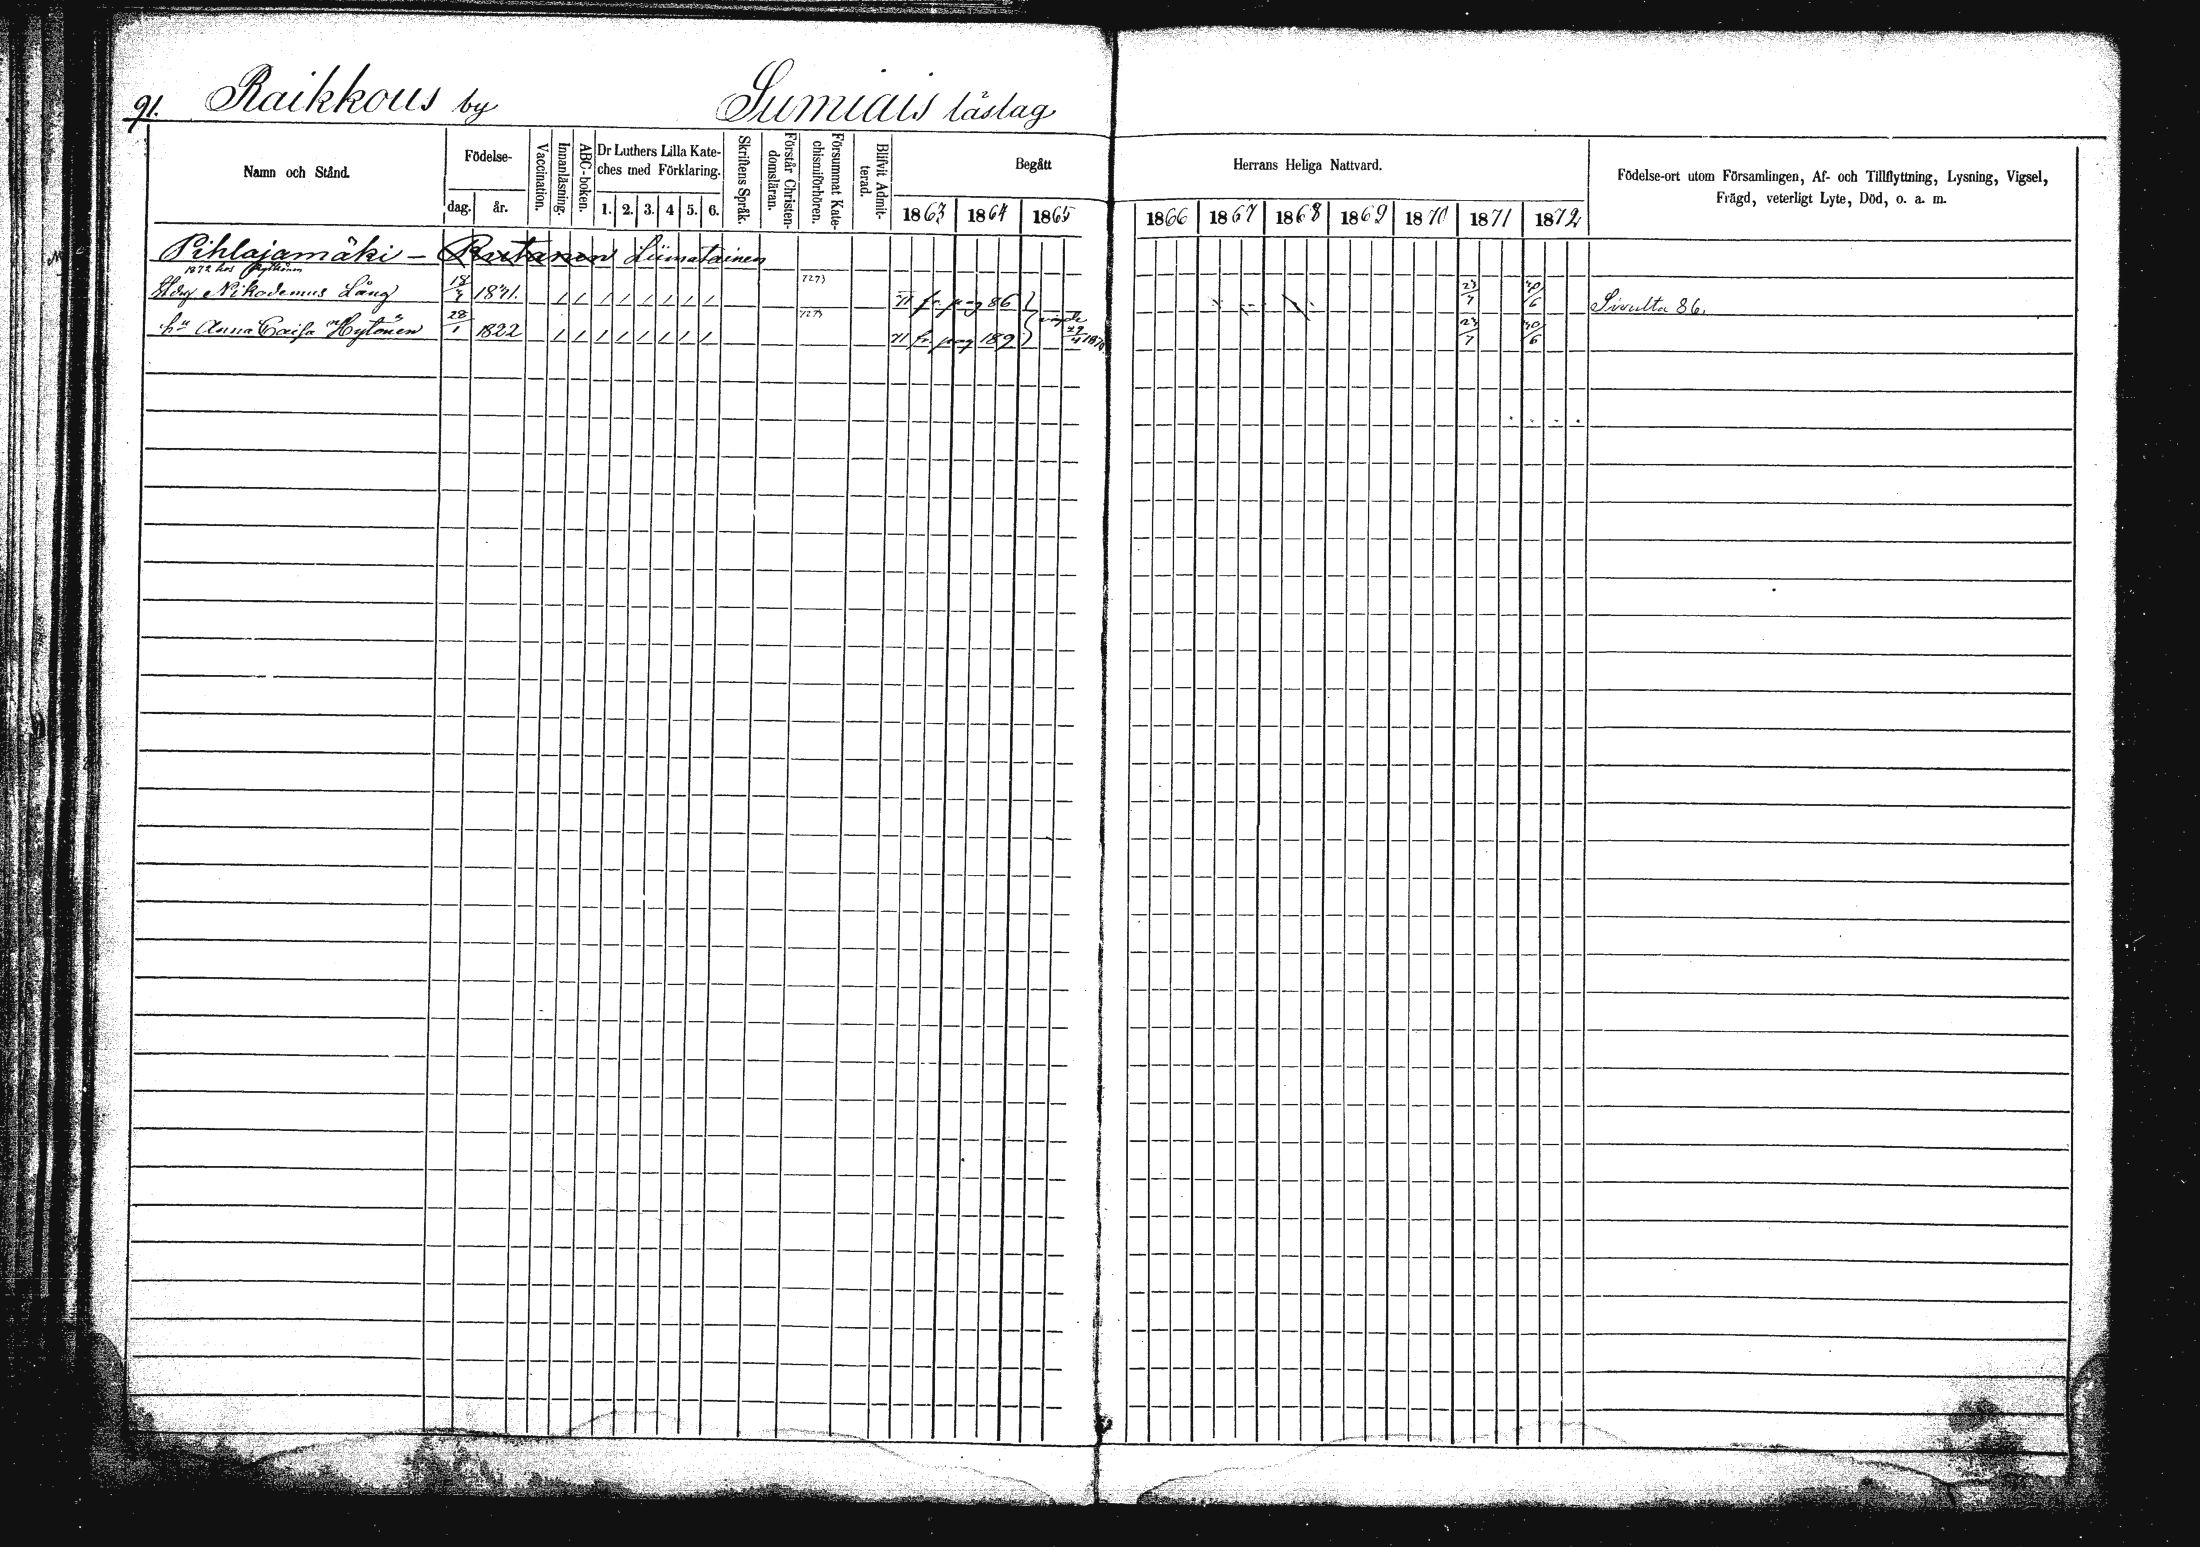 91. Raikkous by Sumiais läslag
Namn och Stånd.
Födelse-
dag. år.
Vaccination.
Innanläsning.
ABC-boken.
Dr Luthers Lilla Kate-
ches med Förklaring.
1. 2. 3. 4 5. 6.
Skriftens Språk.
Förstår Christen-
domsläran.
Försummat Kate-
chismiförhören.
Blifvit Admit-
terad.
Begått Herrans Heliga Nattvard.
1863 1864 1865 1866 1867 1868 1869 1870 1871 1872
Födelse-ort utom Församlingen, Af- och Tillflyttning, Lysning, Vigsel,
Frägd, veterligt Lyte, Död, o. a. m.
Pihlajamäki – Rutanen Liimatainen
1872 hos
Nikodemus Lång 7273 71 fr. pag 86 23/7 30/6 Sivulta 86.
hu Anna Caisa Hytönen 28/1 1822 7273 71 fr. pag 189 23/7 30/6